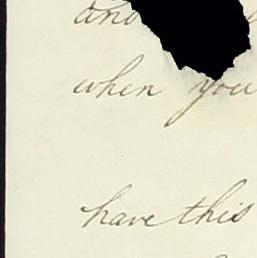 and
when you
have this